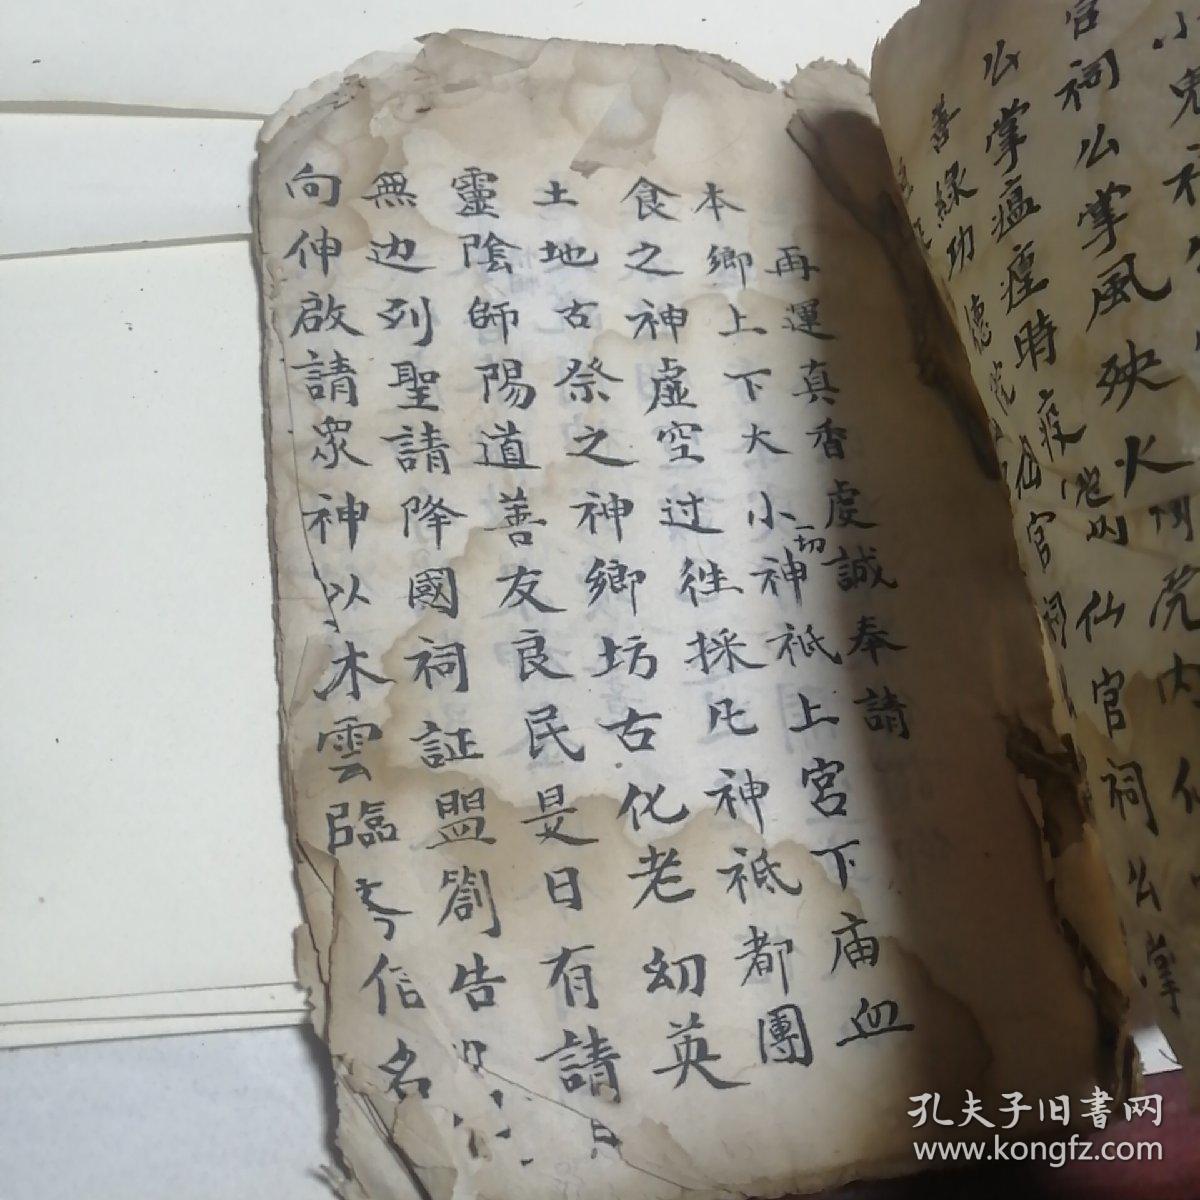 小鬼
官祠公掌風殃火
公掌瘟瘟時疫
仙官祠公掌
善緣功德
仙官祠
再運真香虔誠奉請
本鄉上下大小一切神祇上宮下庙血
食之神虛空过徃採㐰神祇都團
土地古祭之神鄉坊古化老幼英
靈陰師陽道善友良民是日有請
無边列聖請降國祠証盟劄告
向伸啟請眾神以木雲臨今信名
孔夫子旧书网
www.kongfz.com